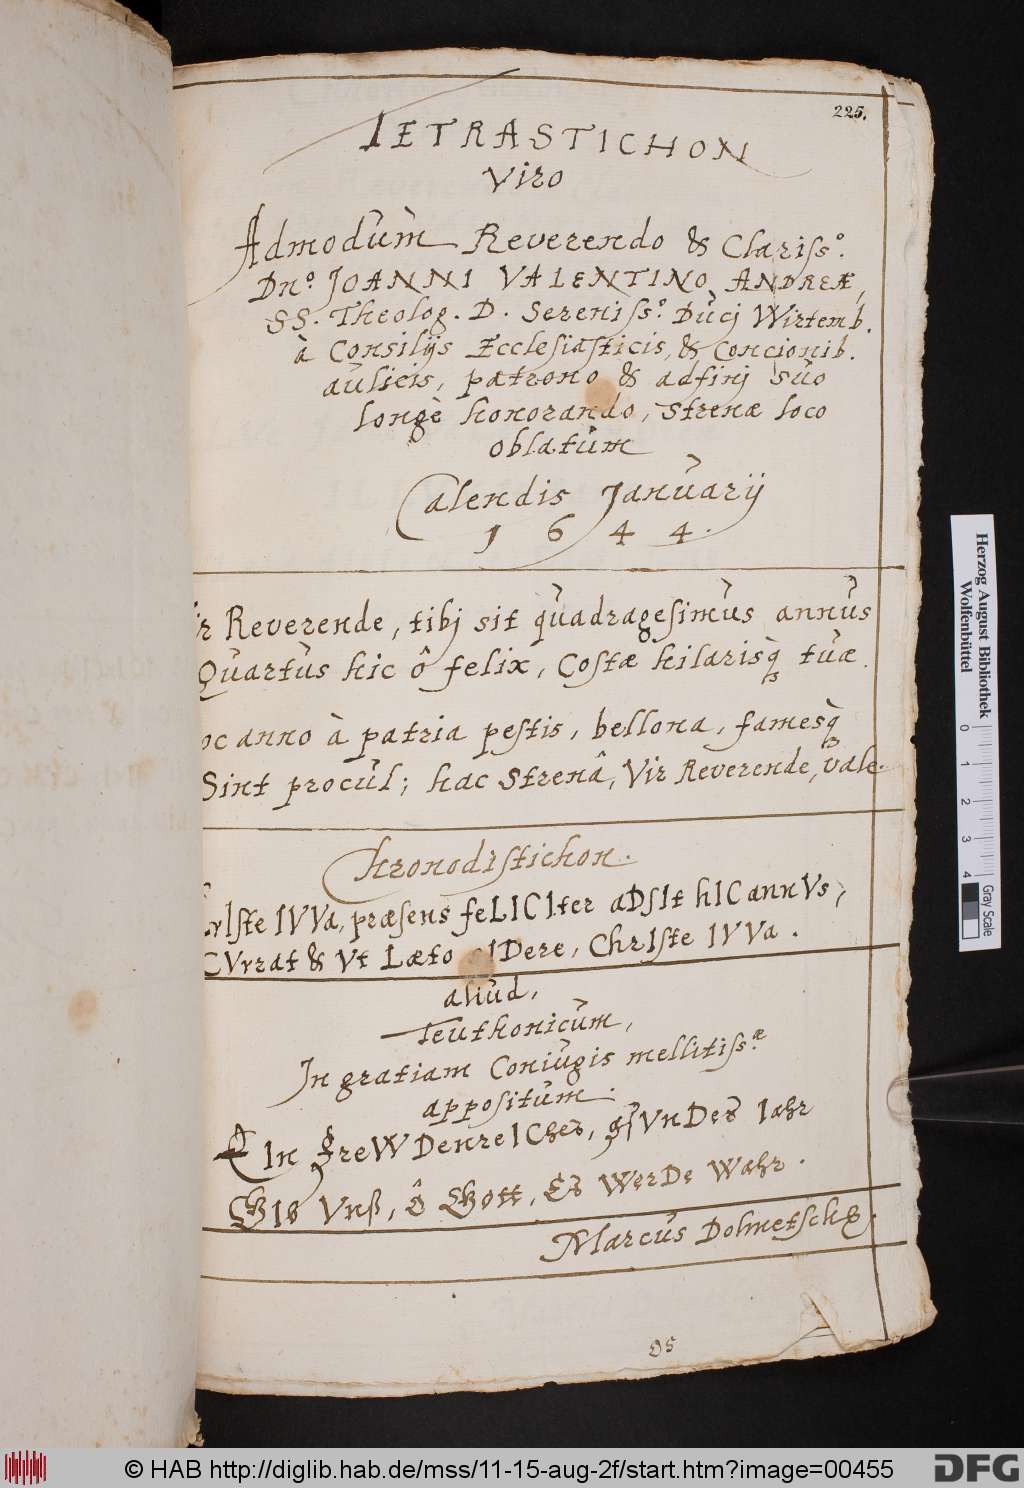 225.
TETRASTICHON
Viro
Admodùm Reverendo & Clariss.º
Dn.º JOANNI VALENTINO ANDREÆ,
SS. Theolog. D. Sereniss.º Ducj Wirtemb.
à Consilijs Ecclesiasticis, & Concionib.
aulicis, patrono & adfinj suo
longè honorando, strenæ loco
oblatum
Calendis Januarij
1644.
ir Reverende, tibj sit quadragesimus annus
Quartus hic ô felix, Costæ hilarisq́ tuæ.
oc anno à patria pestis, bellona, famesq́
Sint procul; hac strenâ, Vir Reverende, vale.
Chronodistichon.
ChrIste IVVa, præsens feLICIter aDsIt hIC annVs,
CVrrat & Vt Læto sIDere, ChrIste IVVa.
aliud,
Teuthonicum,
In gratiam Coniugis mellitiss.æ
appositum.
EIn FreWDenreIChes, gsVnDes Iahr
GIb Vnß, ô Gott, Es WerDe Wahr.
Marcus Dolmetsch
05
Herzog August Bibliothek
Wolfenbüttel
0 1 2 3 4
Gray Scale
© HAB http://diglib.hab.de/mss/11-15-aug-2f/start.htm?image=00455
DFG